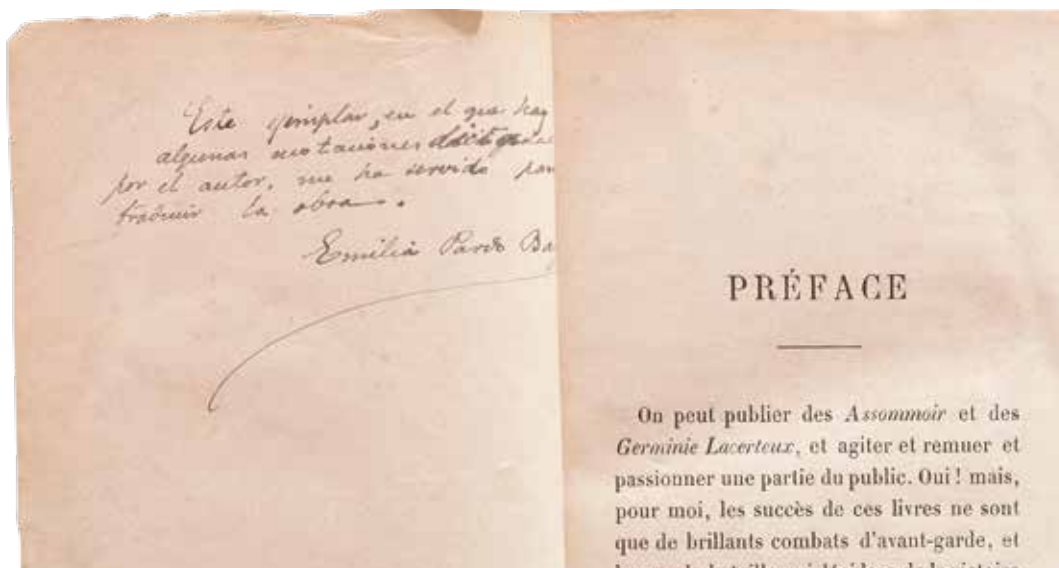 Este ejemplar, en el que hay
algunas anotaciones
por el autor, me ha servido para
traducir la obra.
Emilia Pardo Ba
PRÉFACE
On peut publier des Assommoir et des
Germinie Lacerteux, et agiter et remuer et
passionner une partie du public. Oui ! mais,
pour moi, les succès de ces livres ne sont
que de brillants combats d'avant-garde, et